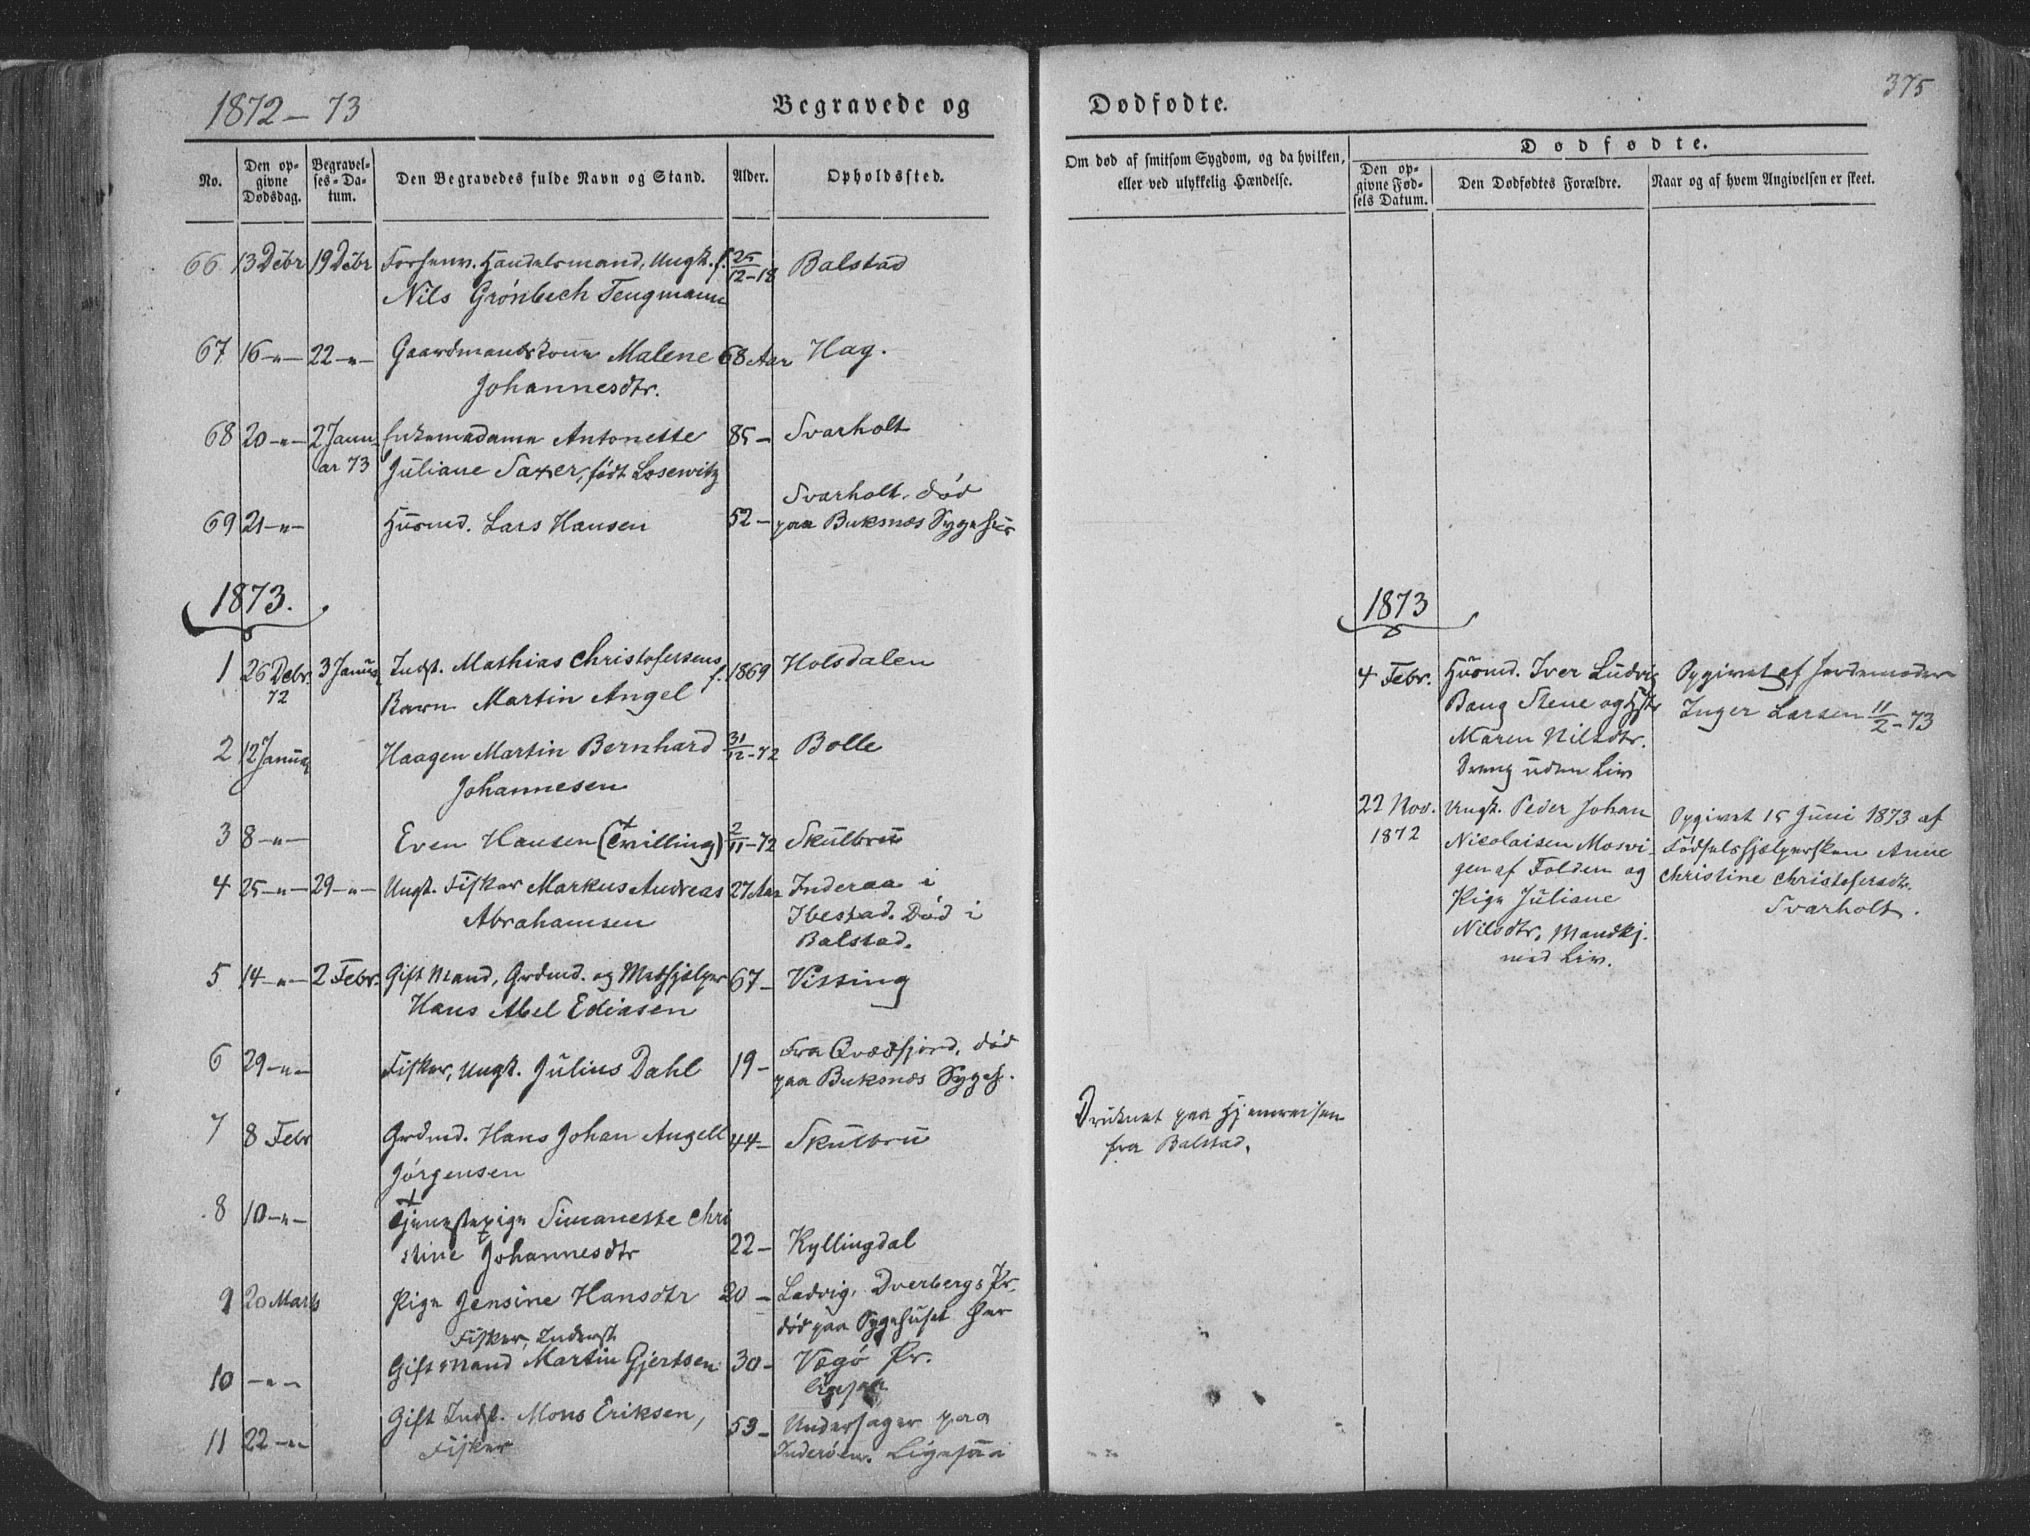 1872 – 73
Begravede og
No.
Den op-
givne
Dødsdag.
Begravel-
ses-Da-
tum.
Den Begravedes fulde Navn og Stand.
Alder.
Opholdssted.
66 13 Debr 19 Debr Forhenv. Handelsmand, Ungk. f. 25/12-18 Balstad
Nils Grönbech Tengmann
67 16 -"- 22 -"- Gaardmandskone Malene 68 Aar Hag.
Johannesdtr.
68 20 -"- 2 Janu- Enkemadame Antonette 85 – Svarholt
ar 73 Juliane Saxer, født Losewitz
Svarholt, død
69 21 -"- Huusmd. Lars Hansen 52 – paa Buksnæs Sygehus
1873.
1 26 Debr. 3 Janua Indst. Mathias Christofersens f. 1869 Holsdalen
72 Barn Martin Angel
2 12 Janua Haagen Martin Bernhard 31/12-72 Bolle
Johannesen
3 8 -"- Even Hansen (Tvilling) 2/11-72 Skulbru
4 25 -"- 29 -"- Ungk. Fisker Markus Andreas 27 Aar Inderaa i
Abrahamsen Ibestad. Død i
Balstad.
5 14 -"- 2 Febr. Gift Mand, Grdmd. og Medhjelper 67 – Vissing
Hans Abel Ediasen
6 29 -"- Fisker, Ungk. Julius Dahl 19 – Fra Qvædfjord, død
paa Buksnæs Sygeh.
7 8 Febr Grdmd. Hans Johan Angell 44 – Skulbru
Jörgensen
8 10 -"- Tjenestepige Simanette Chri
stine Johannesdtr 22 – Kyllingdal
9 20 Marts Pige Jensine Hansdtr 20 – Ladvig, Dverbergs Pr.
død paa Sygehuset her
Fisker, Inderst
10 -"- Gift Mand Martin Gjertsen 30 – Vægö Pr.
11 22 -"- Gift Indst. Mons Eriksen, 53 – paa
Fisker Inderöen. Ligesaa
Dødfødte.
375
Om død af smitsom Sygdom, og da hvilken,
eller ved ulykkelig Hændelse.
Dødfødte.
Den op-
givne Fød-
sels Datum.
Den Dødfødtes Forældre.
Naar og af hvem Angivelsen er skeet.
1873
4 Febr. Huusmd. Iver Ludvig Opgivet af Jordemoder
Bang Stene og Hstr Inger Larsen 11/2-73
Maren Nilsdtr.
Dreng uden Liv
22 Nov. Ungk. Peder Johan Opgivet 15 Juni 1873 af
1872 Nicolaisen Mosvi- Fødselshjælpersken Anne
gen af Folden og Christine Christofersdtr.
Pige Juliane Svarholt.
Nilsdtr. Mandkj.
med Liv.
Druknet paa Hjemreisen
fra Balstad.